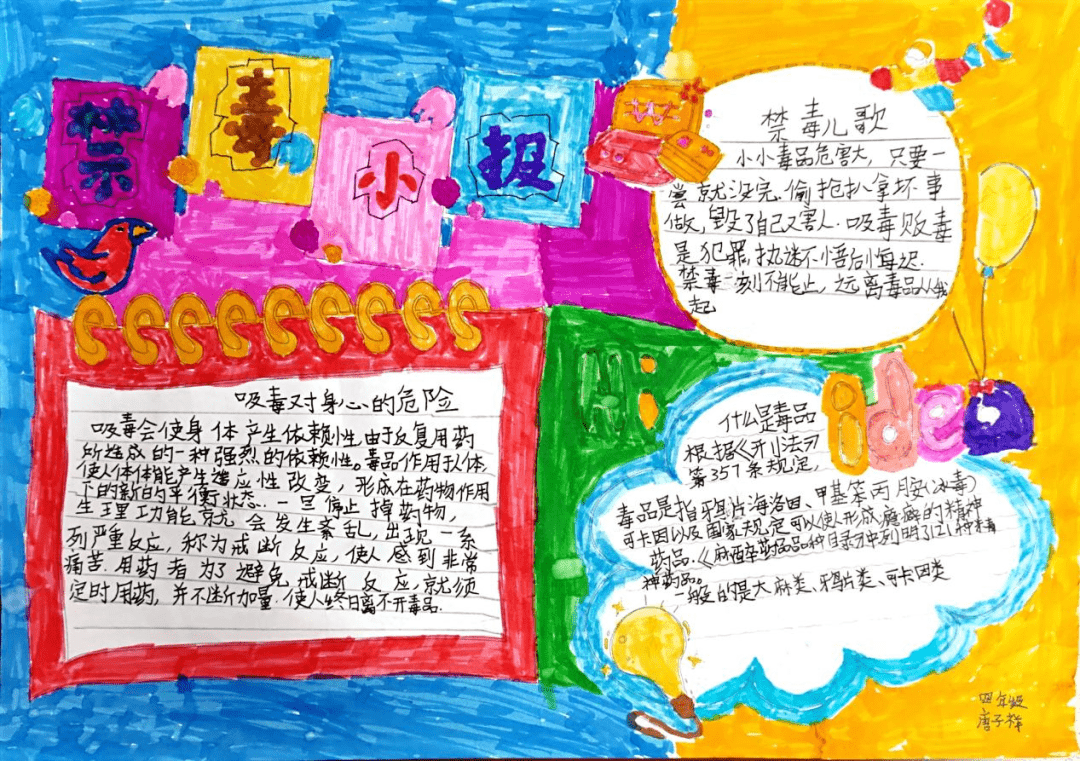 禁毒小报
禁毒儿歌
小小毒品危害大，只要一
尝就没完.偷抢扒拿坏事
做，毁了自己又害人.吸毒贩毒
是犯罪，执迷不悟后悔迟.
禁毒一刻不能止，远离毒品从我
起
吸毒对身心的危险
吸毒会使身体产生依赖性由于反复用药
所造成的一种强烈的依赖性。毒品作用于人体，
使人体体能产生适应性改变，形成在药物作用
下的新的平衡状态.一旦停止掉药物，
生理功能就会发生紊乱，出现一系
列严重反应，称为戒断反应，使人感到非常
痛苦.用药者为了避免戒断反应，就须
定时用药，并不断加量.使人终日离不开毒品.
Hi:
什么是毒品
根据《刑法》
第357条规定，
毒品是指鸦片海洛因、甲基苯丙胺(冰毒)
可卡因以及国家规定可以使人形成瘾癖的精神
药品.《麻醉药品品种目录》中列明了121种精
神药品。
一般的是大麻类、鸦片类、可卡因类
四年级
唐子祥